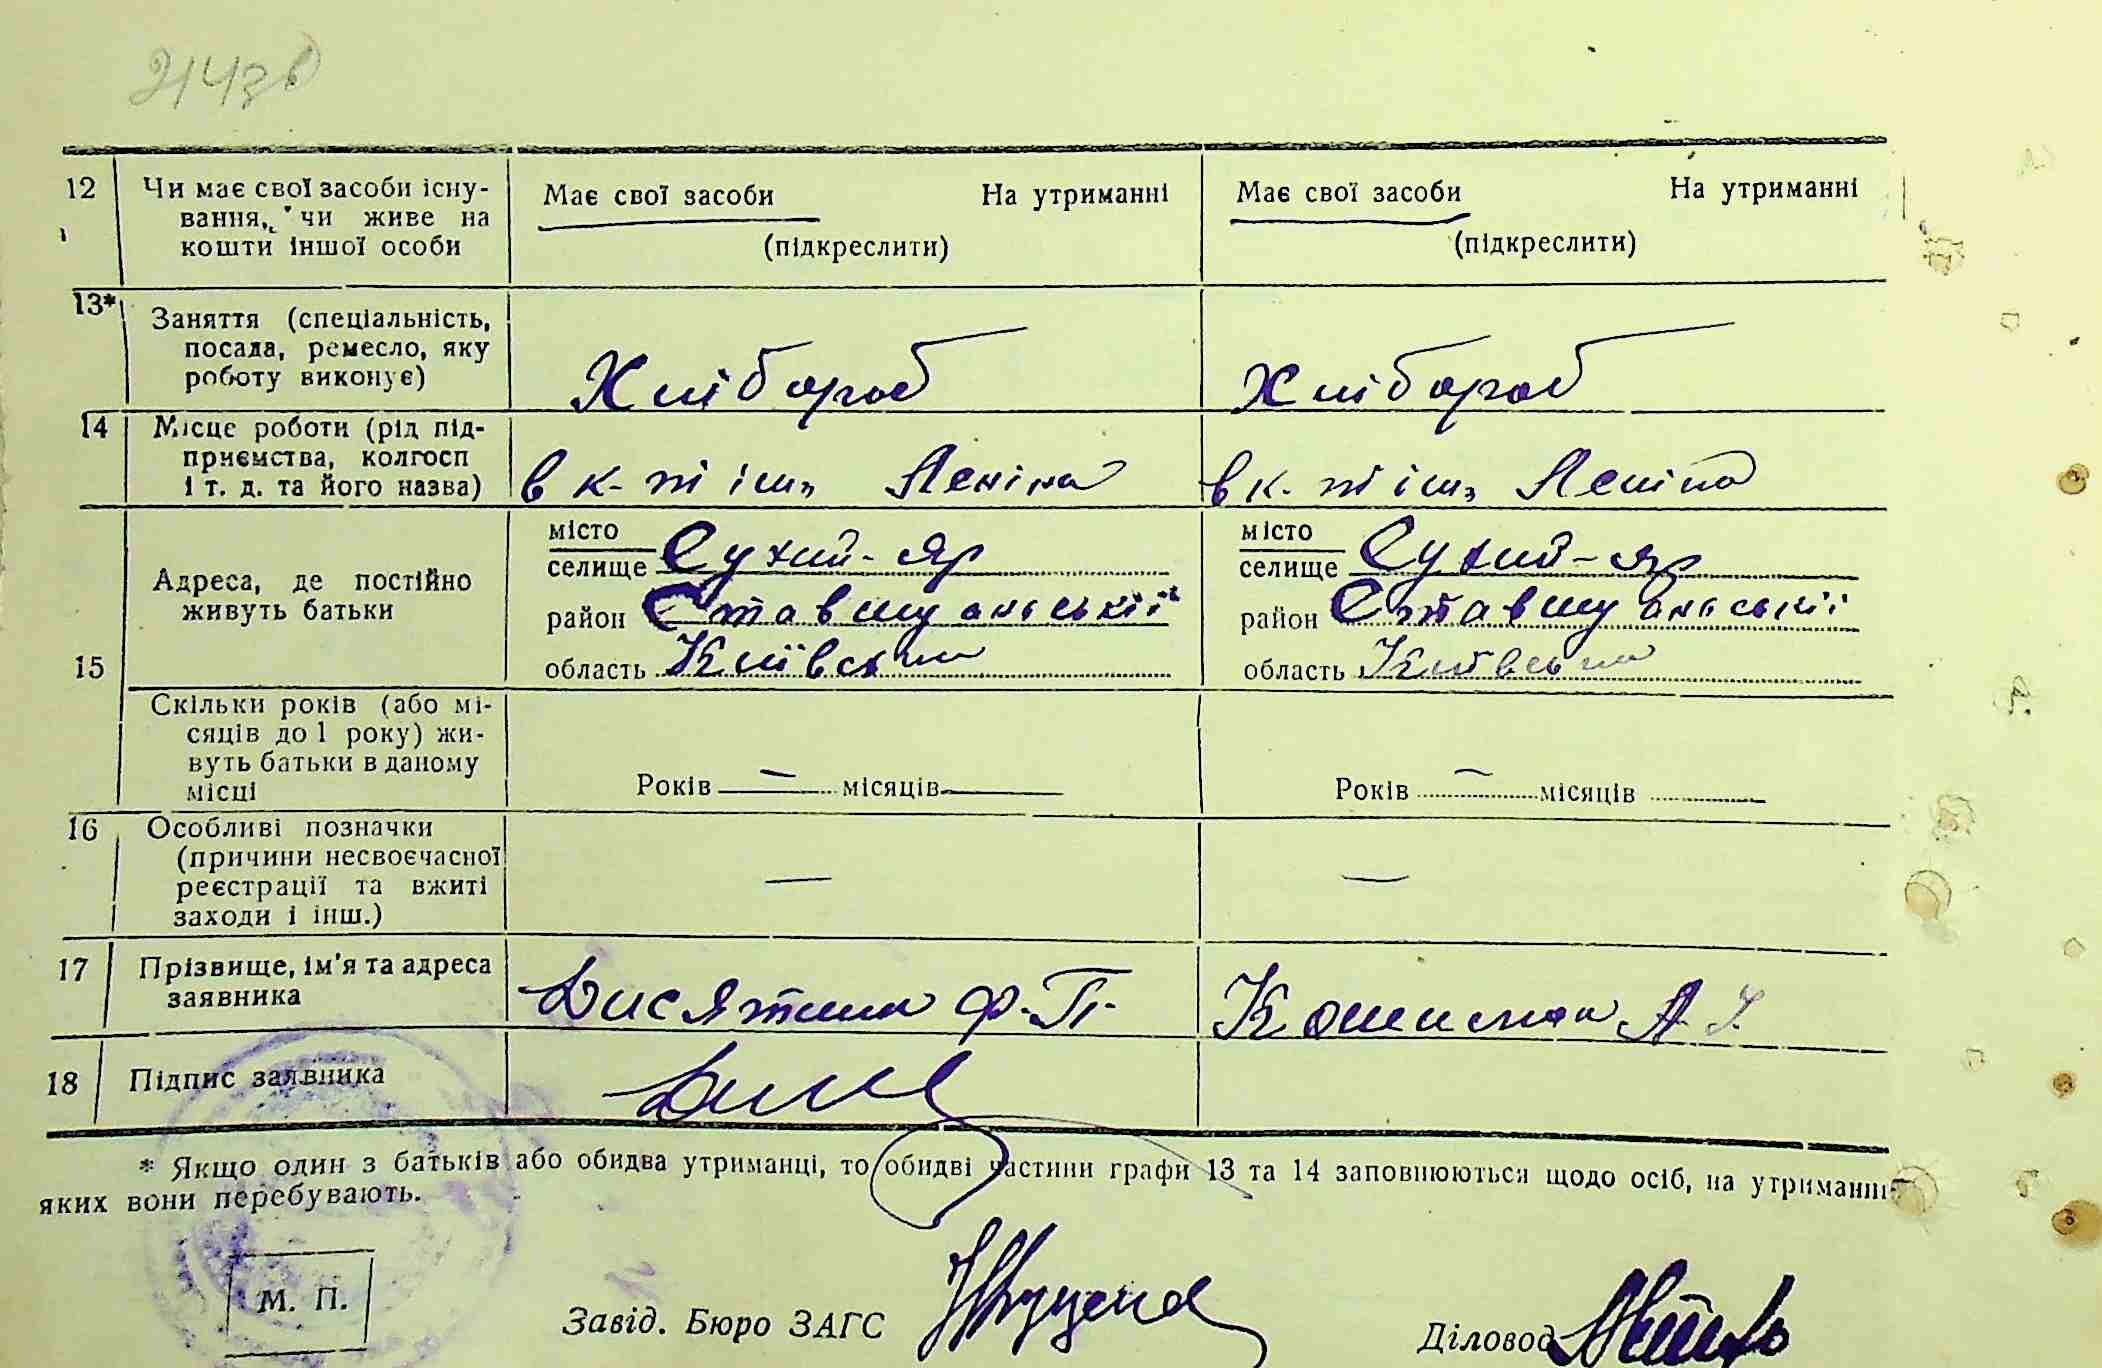 12 Чи має свої засоби існу-
вання, чи живе на
кошти іншої особи
Має свої засоби На утриманні
(підкреслити)
Має свої засоби На утриманні
(підкреслити)
13* Заняття (спеціальність,
посада, ремесло, яку
роботу виконує)
Хлібороб
Хлібороб
14 Місце роботи (рід під-
приємства, колгосп
і т. д. та його назва)
в к-пі ім. Леніна
в к-пі ім. Леніна
15 Адреса, де постійно
живуть батьки
місто
селище Сухий-яр
район Ставищанський
область Київська
місто
селище Сухий-яр
район Ставищанський
область Київська
Скільки років (або мі-
сяців до 1 року) жи-
вуть батьки в даному
місці
Років — місяців
Років — місяців
16 Особливі позначки
(причини несвоєчасної
реєстрації та вжиті
заходи і інш.)
—
—
17 Прізвище, ім'я та адреса
заявника
Дисятник Ф. П.
А.
18 Підпис заявника
* Якщо один з батьків або обидва утриманці, то обидві частини графи 13 та 14 заповнюються щодо осіб, на утриманні
яких вони перебувають.
М. П.
Завід. Бюро ЗАГС
Діловод